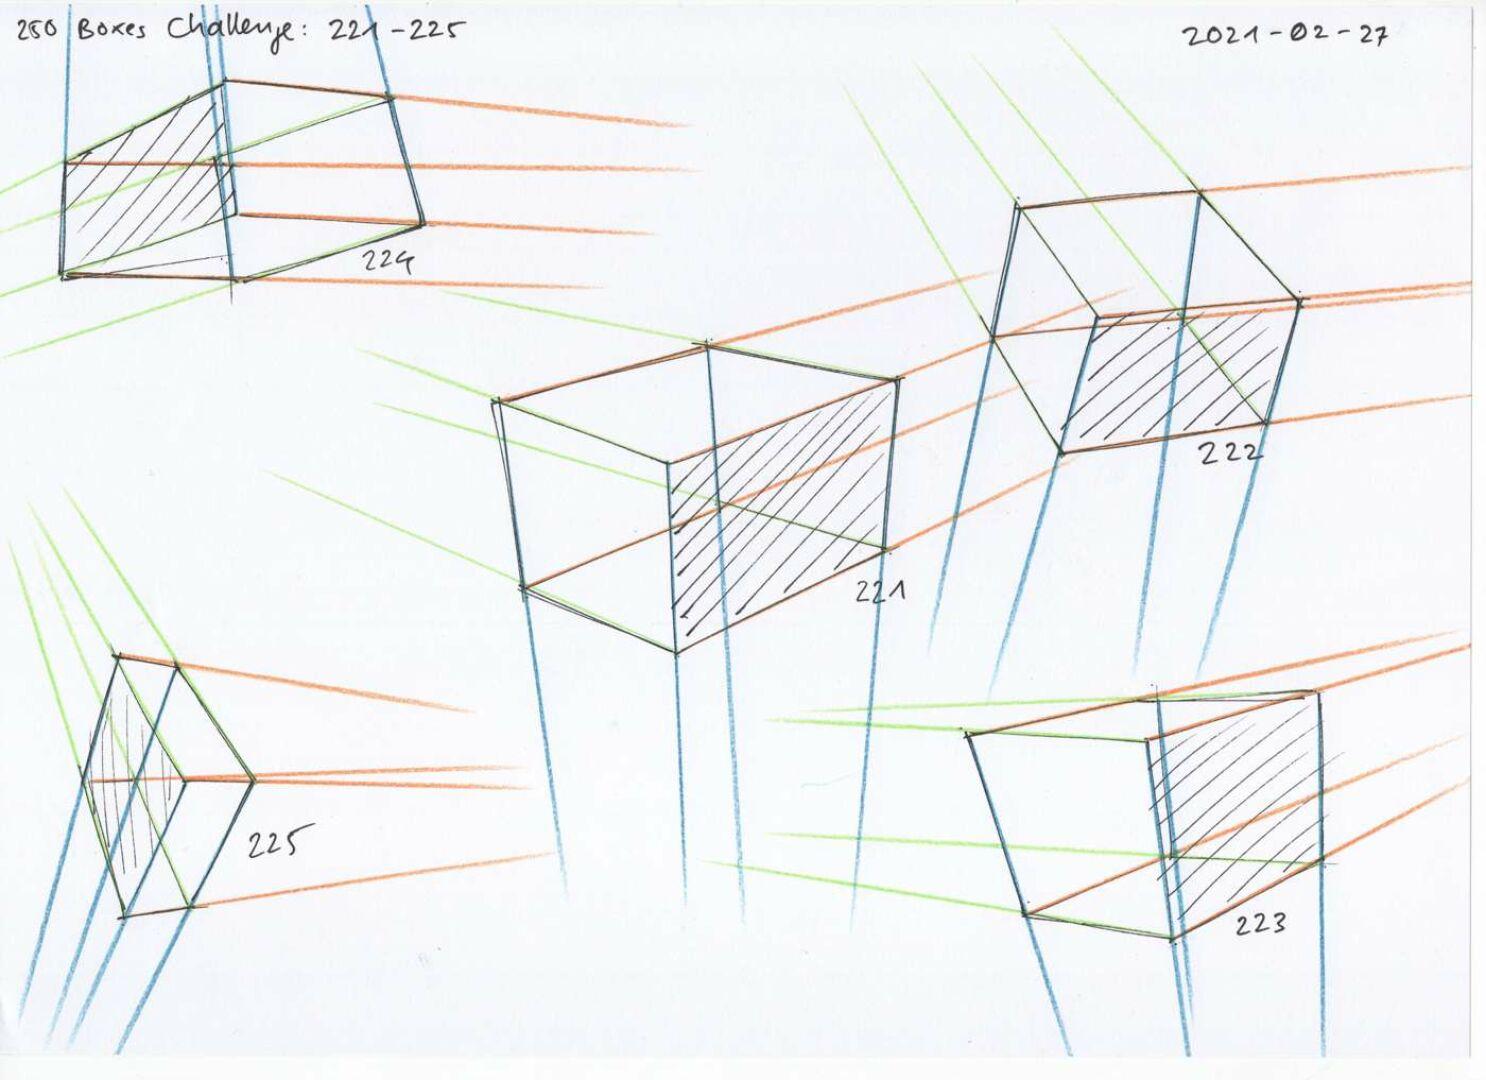 250 Boxes Challenge: 221-225
2021-02-27
224
222
221
225
223